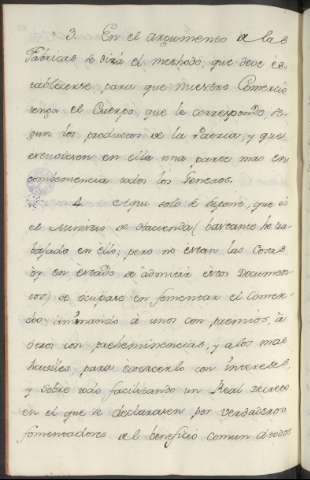 3. En el argumento de las
Fabricas se dirá el methodo, que deve es-
tablecerse, para que nuestro Comercio
tenga el Cuerpo, que le corresponde se-
gun los productos de la Patria, y que
en ella una parte mas en
todos los Generos.
4. Aqui solo se dirá, que si
el Ministro de Hacienda (bastante he tra-
bajado en ello; pero no estan las Cosas
oy en estado de admitir estos Documen-
tos) se ocupase en fomentar el Comer-
cio, animando à unos con premios, à
otros con preheminencias, y a los mas
haviles, para exercerlo con intereses,
y sobre todo facilitando un Real decreto
en el que se declarasen por verdaderos
fomentadores del beneficio comun à todos